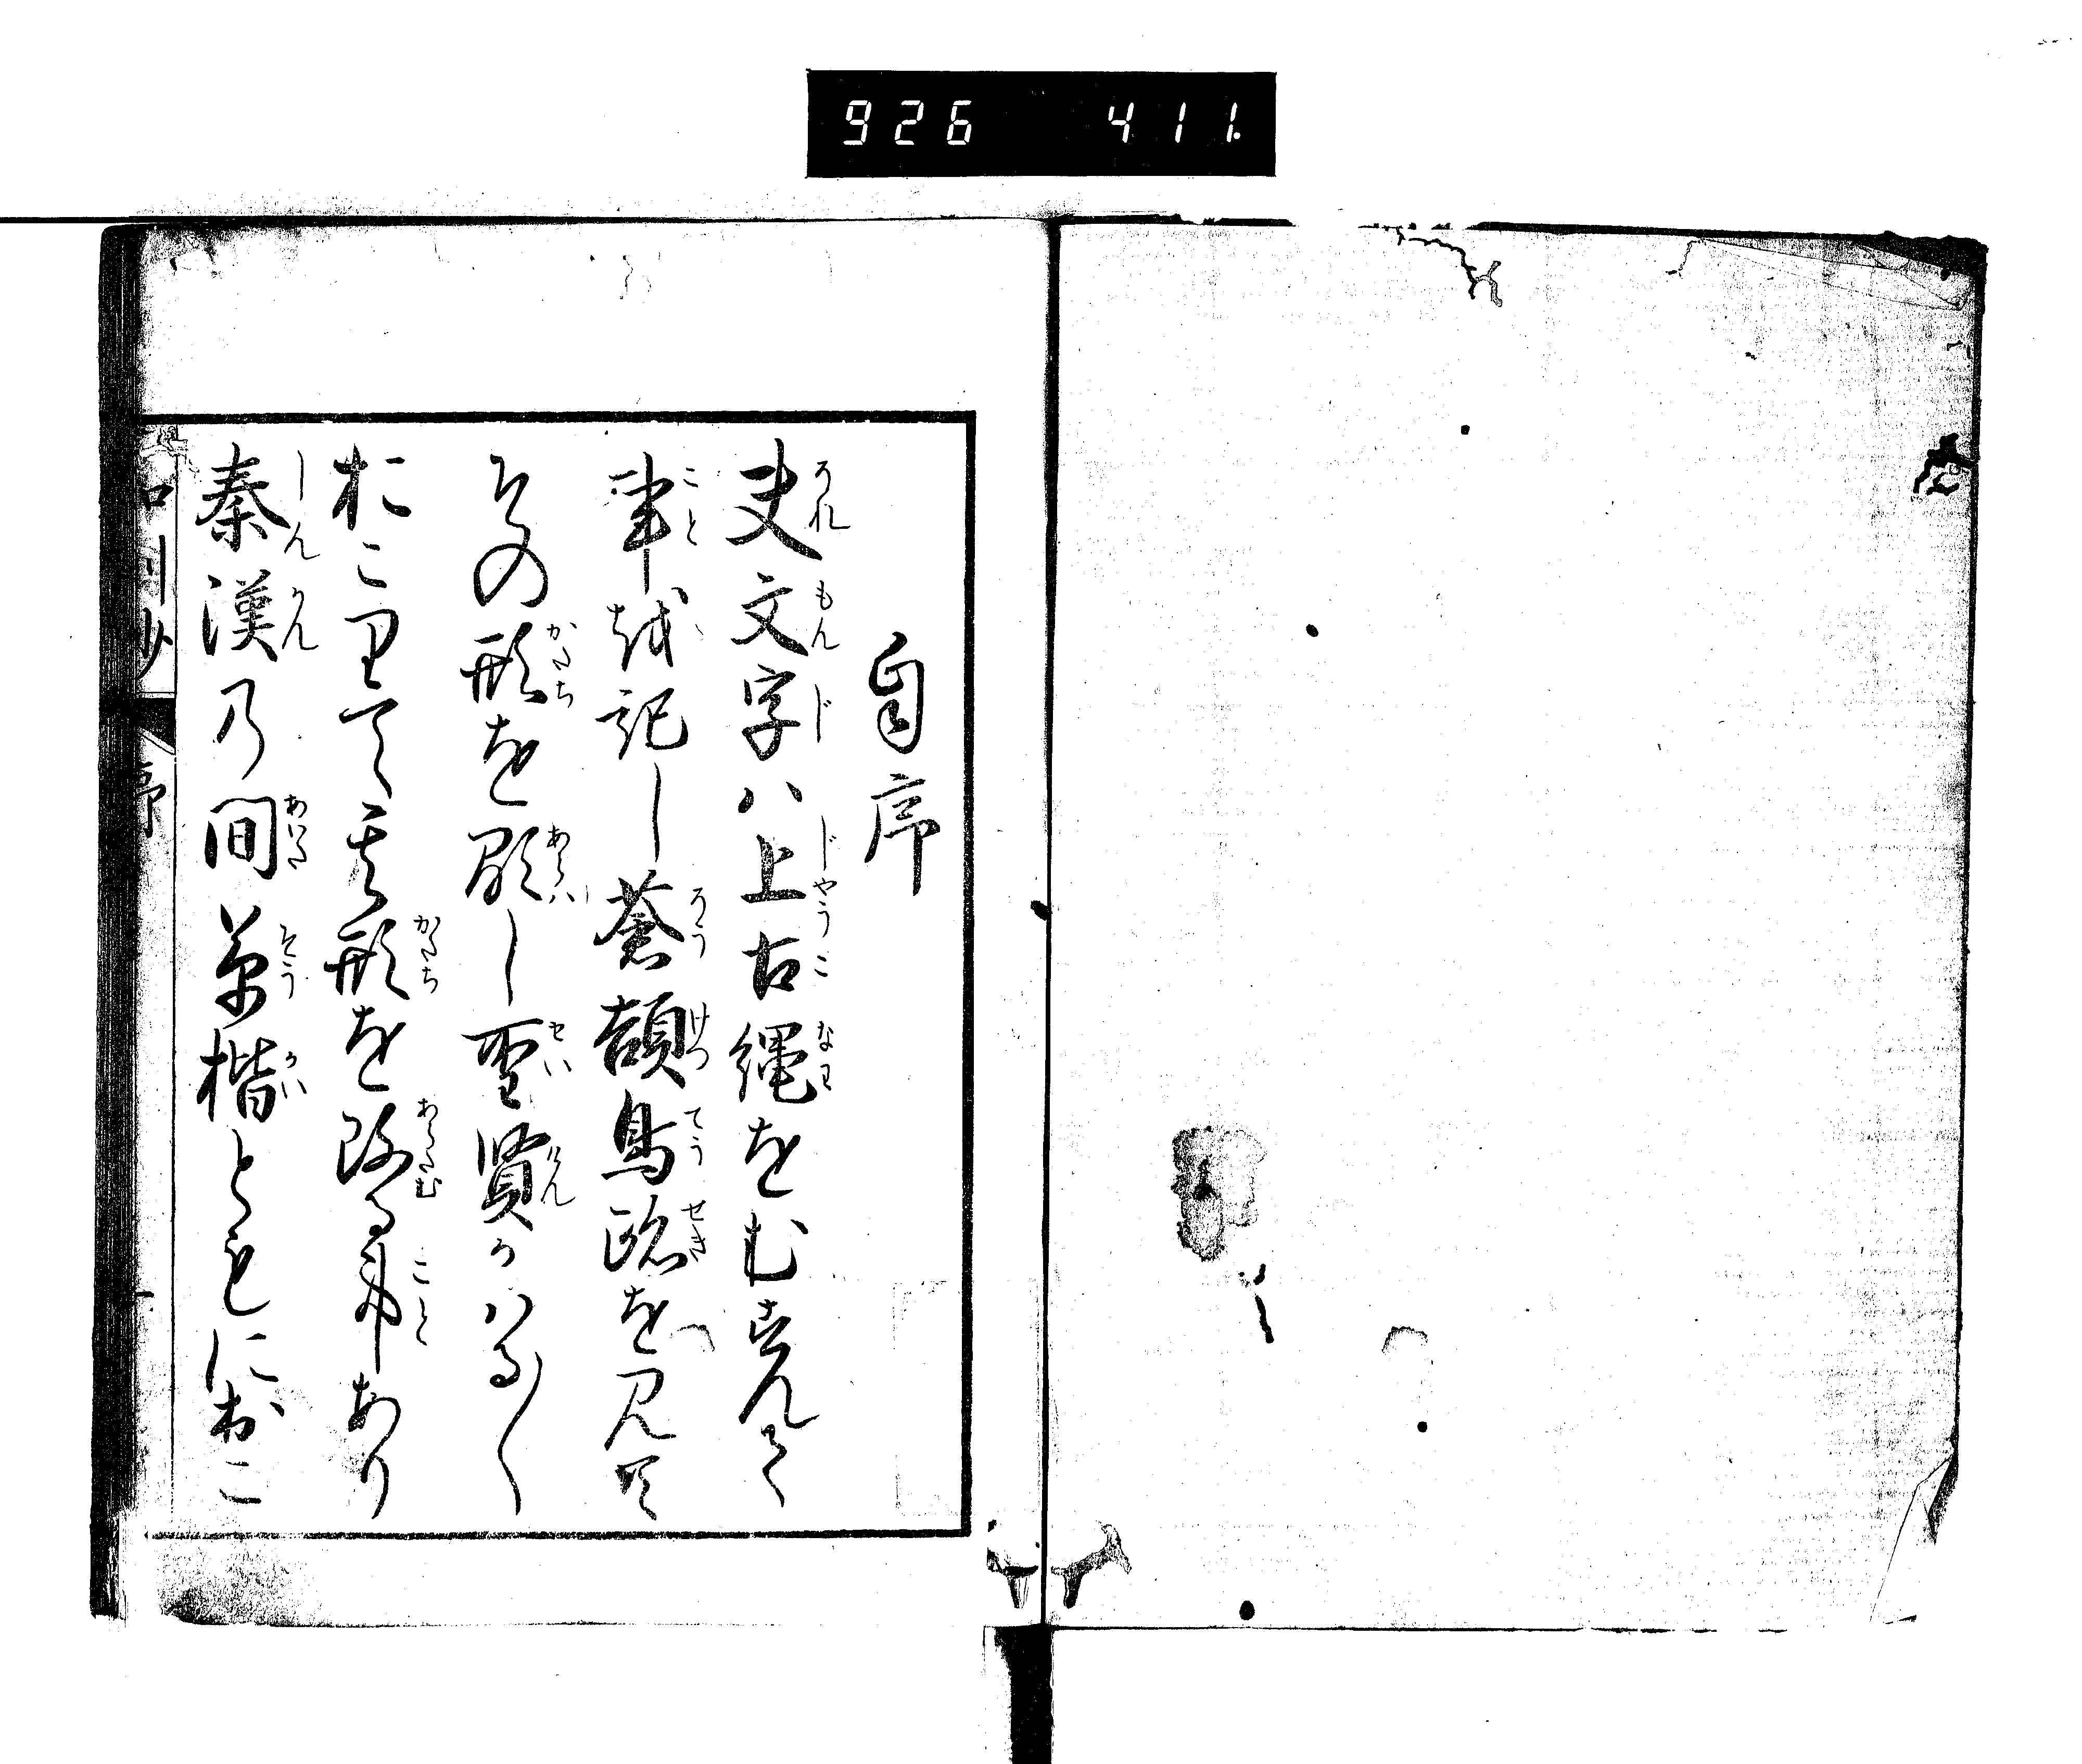 926 411
自序
夫文字ハ上古縄をむすんて
事を記し蒼頡鳥跡を見て
その形を顕し聖賢かはる〱
おこりて其形を改る事あり
秦漢乃間草楷ともにおこ
序